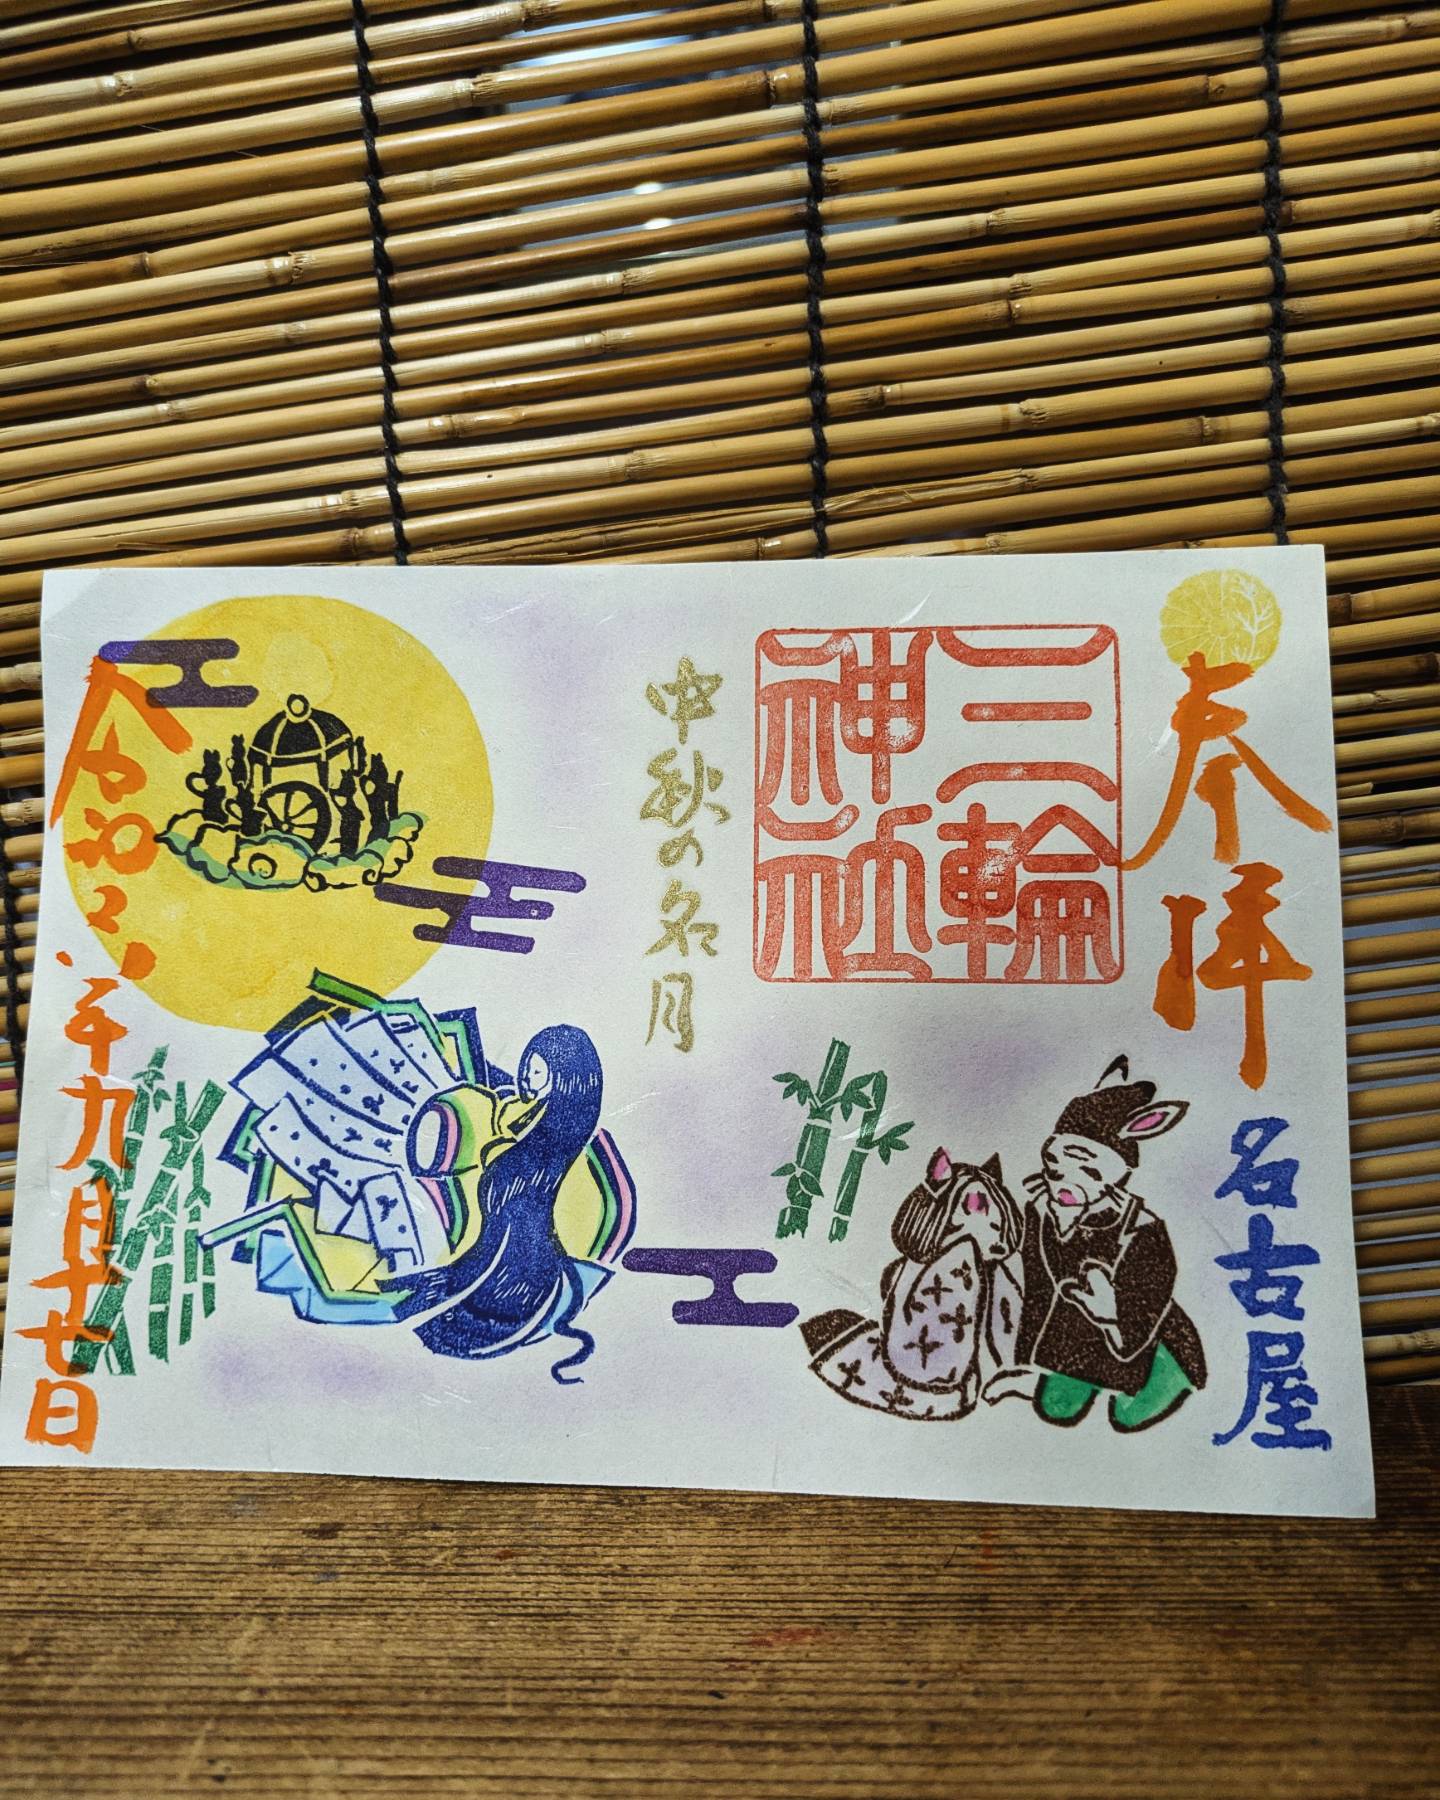 奉拝
名古屋
三輪
神社
中秋の名月
令和六年九月十七日